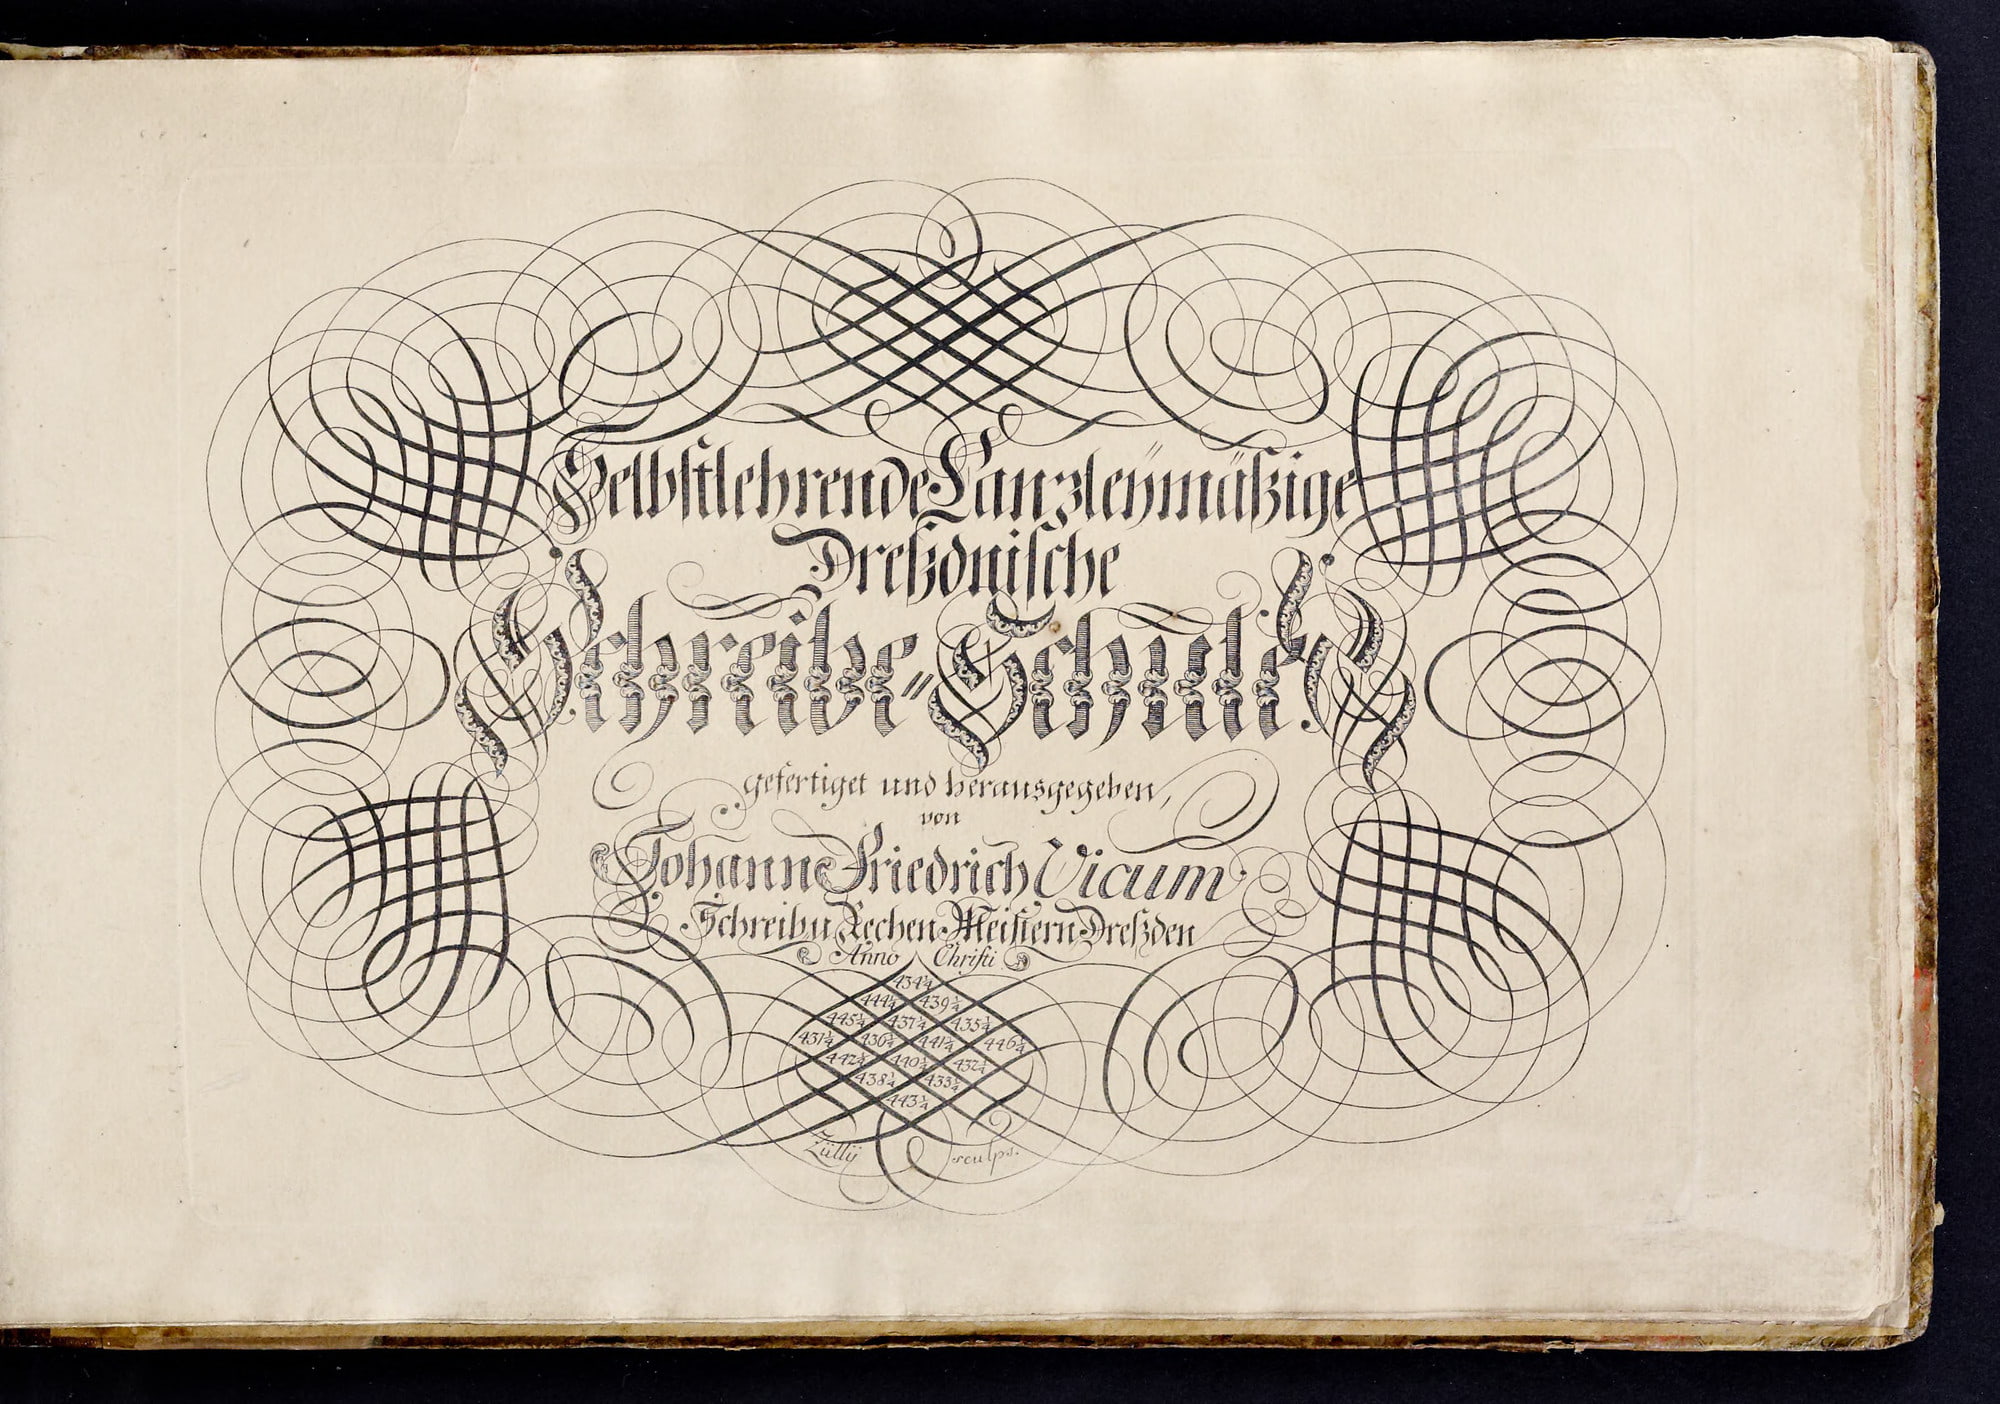 Selbstlehrende Canzleÿmäßige
Dreßdnische
Schreibe=Schule
gefertiget und herausgegeben,
von
Johann Friedrich Vicum
Schreib u Rechen Meistern Dreßden
Anno Christi
434¼
444¼ 439¼
445¼ 437¼ 435¼
431¼ 436¼ 441¼ 446¼
442¼ 440¼ 432¼
438¼ 433¼
443¼
Züllÿ sculps.